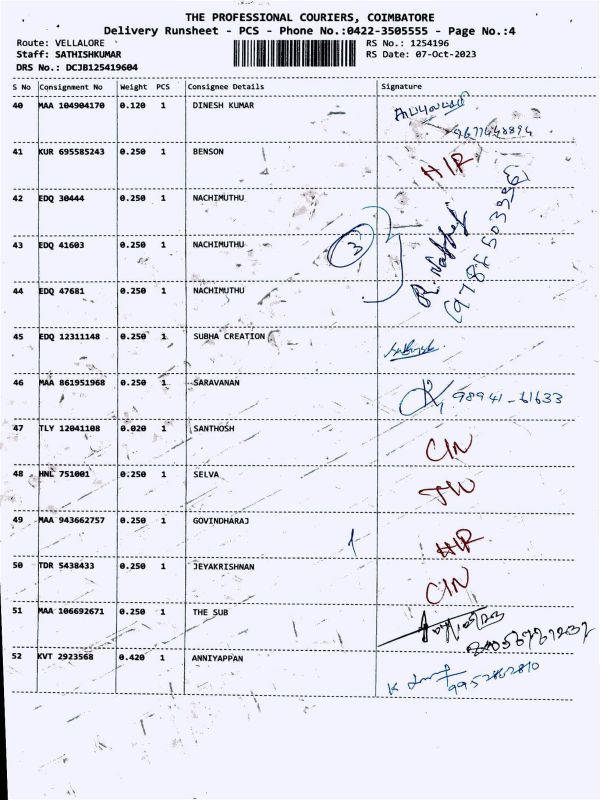 THE PROFESSIONAL COURIERS, COIMBATORE
Delivery Runsheet - PCS - Phone No.:0422-3505555 - Page No.:4
Route: VELLALORE RS No.: 1254196
Staff: SATHISHKUMAR RS Date: 07-Oct-2023
DRS No.: DCJB125419604
S No Consignment No Weight PCS Consignee Details Signature
40 MAA 104904170 0.120 1 DINESH KUMAR
9677448894
41 KUR 695585243 0.250 1 BENSON H/R
42 EDQ 30444 0.250 1 NACHIMUTHU
43 EDQ 41603 0.250 1 NACHIMUTHU 3
44 EDQ 47681 0.250 1 NACHIMUTHU
45 EDQ 12311148 0.250 1 SUBHA CREATION
46 MAA 861951968 0.250 1 SARAVANAN 98941-61633
47 TLY 12041108 0.020 1 SANTHOSH C/N
48 HNL 751001 0.250 1 SELVA
49 MAA 943662757 0.250 1 GOVINDHARAJ H/R
50 TDR 5438433 0.250 1 JEYAKRISHNAN C/N
51 MAA 106692671 0.250 1 THE SUB
52 KVT 2923568 0.420 1 ANNIYAPPAN K
9952862810